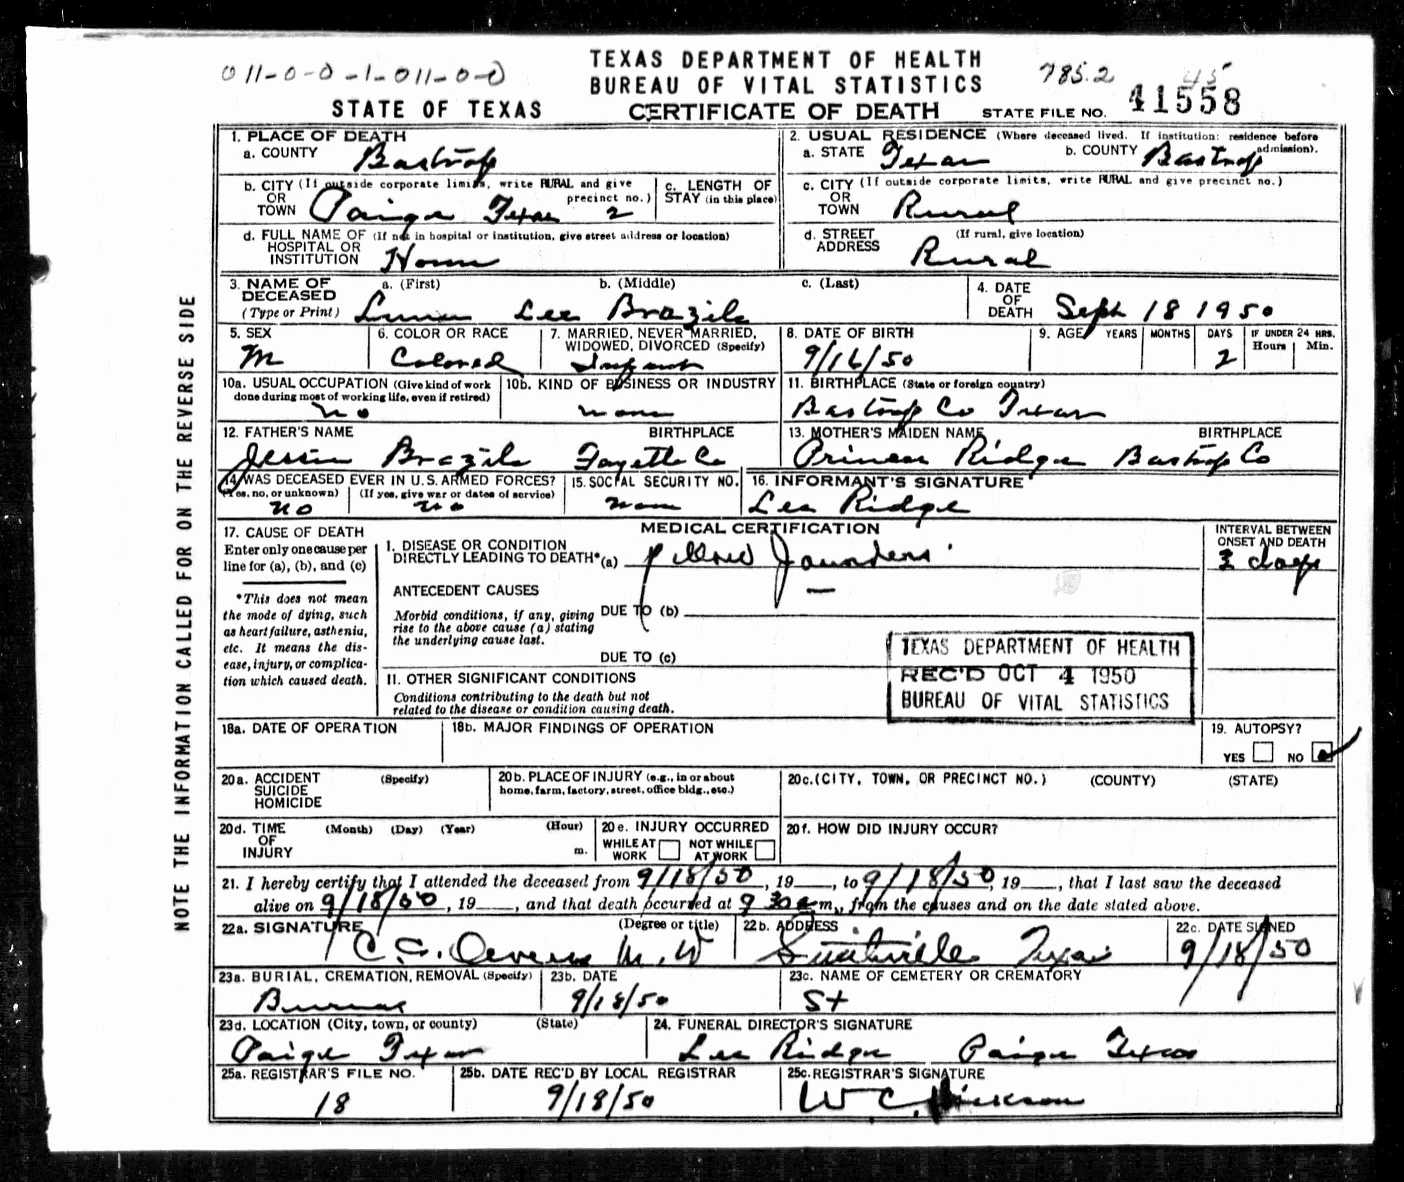 011-0-0-1-011-0-0
TEXAS DEPARTMENT OF HEALTH
BUREAU OF VITAL STATISTICS
785.2 45
STATE OF TEXAS CERTIFICATE OF DEATH STATE FILE NO. 41558
NOTE THE INFORMATION CALLED FOR ON THE REVERSE SIDE
1. PLACE OF DEATH
a. COUNTY Bastrop
2. USUAL RESIDENCE (Where deceased lived. If institution: residence before admission).
a. STATE Texas b. COUNTY Bastrop
b. CITY (If outside corporate limits, write RURAL and give precinct no.)
OR TOWN Paige Texas 2
c. LENGTH OF STAY (in this place)
c. CITY (If outside corporate limits, write RURAL and give precinct no.)
OR TOWN Rural
d. FULL NAME OF (If not in hospital or institution, give street address or location)
HOSPITAL OR INSTITUTION Home
d. STREET ADDRESS (If rural, give location)
Rural
3. NAME OF DECEASED a. (First) b. (Middle) c. (Last)
(Type or Print) Lee Brazile
4. DATE OF DEATH Sept 18 1950
5. SEX
M
6. COLOR OR RACE
Colored
7. MARRIED, NEVER MARRIED, WIDOWED, DIVORCED (Specify)
Infant
8. DATE OF BIRTH
9/16/50
9. AGE YEARS MONTHS DAYS IF UNDER 24 HRS. Hours Min.
2
10a. USUAL OCCUPATION (Give kind of work done during most of working life, even if retired)
no
10b. KIND OF BUSINESS OR INDUSTRY
none
11. BIRTHPLACE (State or foreign country)
Bastrop Co Texas
12. FATHER'S NAME BIRTHPLACE
Jessie Brazile Fayette Co
13. MOTHER'S MAIDEN NAME BIRTHPLACE
Princess Ridge Bastrop Co
14. WAS DECEASED EVER IN U.S. ARMED FORCES?
(Yes, no, or unknown) (If yes, give war or dates of service)
no no
15. SOCIAL SECURITY NO.
none
16. INFORMANT'S SIGNATURE
Lee Ridge
17. CAUSE OF DEATH
Enter only one cause per line for (a), (b), and (c)
*This does not mean the mode of dying, such as heart failure, asthenia, etc. It means the disease, injury, or complication which caused death.
MEDICAL CERTIFICATION
I. DISEASE OR CONDITION
DIRECTLY LEADING TO DEATH* (a) Jaunders
ANTECEDENT CAUSES
Morbid conditions, if any, giving rise to the above cause (a) stating the underlying cause last.
DUE TO (b) —
DUE TO (c)
II. OTHER SIGNIFICANT CONDITIONS
Conditions contributing to the death but not related to the disease or condition causing death.
INTERVAL BETWEEN ONSET AND DEATH
days
TEXAS DEPARTMENT OF HEALTH
REC'D OCT 4 1950
BUREAU OF VITAL STATISTICS
18a. DATE OF OPERATION
18b. MAJOR FINDINGS OF OPERATION
19. AUTOPSY?
YES NO
20a. ACCIDENT SUICIDE HOMICIDE (Specify)
20b. PLACE OF INJURY (e.g., in or about home, farm, factory, street, office bldg., etc.)
20c. (CITY, TOWN, OR PRECINCT NO.) (COUNTY) (STATE)
20d. TIME OF INJURY (Month) (Day) (Year) (Hour) m.
20e. INJURY OCCURRED
WHILE AT WORK NOT WHILE AT WORK
20f. HOW DID INJURY OCCUR?
21. I hereby certify that I attended the deceased from 9/18/50, 19__, to 9/18/50, 19__, that I last saw the deceased
alive on 9/18/50, 19__, and that death occurred at 9 30 a m., from the causes and on the date stated above.
22a. SIGNATURE (Degree or title)
22b. ADDRESS
Smithville Texas
22c. DATE SIGNED
9/18/50
23a. BURIAL, CREMATION, REMOVAL (Specify)
Burial
23b. DATE
9/18/50
23c. NAME OF CEMETERY OR CREMATORY
St
23d. LOCATION (City, town, or county) (State)
Paige Texas
24. FUNERAL DIRECTOR'S SIGNATURE
Lee Ridge Paige Texas
25a. REGISTRAR'S FILE NO.
18
25b. DATE REC'D BY LOCAL REGISTRAR
9/18/50
25c. REGISTRAR'S SIGNATURE
W C Hickson